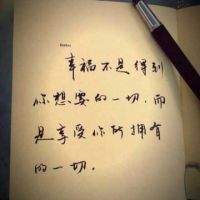 幸福不是得到
你想要的一切，而
是享受你所拥有
的一切。